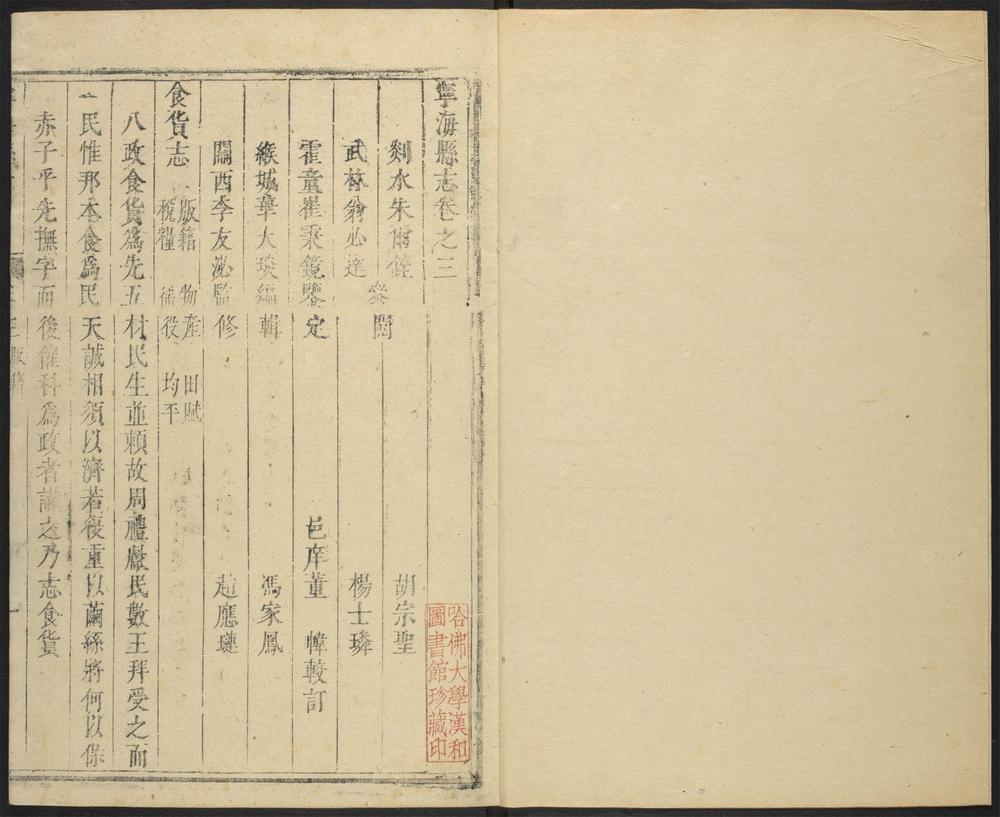 寧海縣志卷之三
剡水朱爾銓
武林翁必達 叅閱
霍童崔秉鏡鑒定
緱城華大琰編輯
關西李友泌監修
胡宗聖
楊士璘
邑庠董 幃較訂
馮家鳳
趙應璉
食貨志 版籍 物產 田賦
稅糧 徭役 均平
八政食貨為先五材民生並頼故周禮獻民數王拜受之而
民惟邦本食為民天誠相須以濟若復重以繭絲將何以保
赤子乎先撫字而後催科為政者講之乃志食貨
三 版籍
一
哈佛大學漢和
圖書館珍藏印